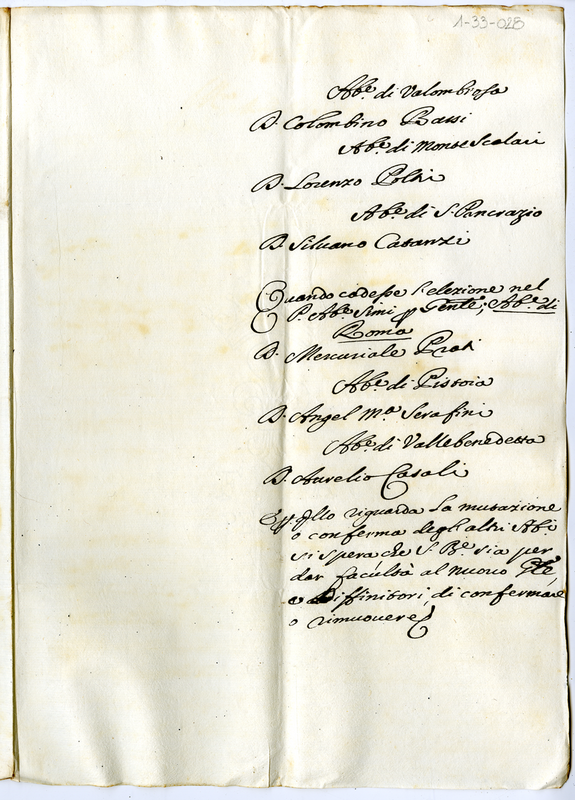 1-33-028
Abe. di Valombrosa
D. Colombino Bassi
Abe. di Monte Scalari
D. Lorenzo Poltri
Abe. di S. Pancrazio
D. Silvano Casanzi
Quando cadesse l'elezione nel
P. Abe. Sini p Genle; Abe. di
Roma
D. Mercuriale Prati
Abe. di Pistoia
D. Angel Ma. Serafini
Abe. di Vallebenedetta
D. Aurelio Casali
riguarda la mutazione
o conferma degli altri Abi.
si spera che S. Be. sia per
dar facultà al nuovo Gle,
e Diffinitori, di confermare
o rimuovere